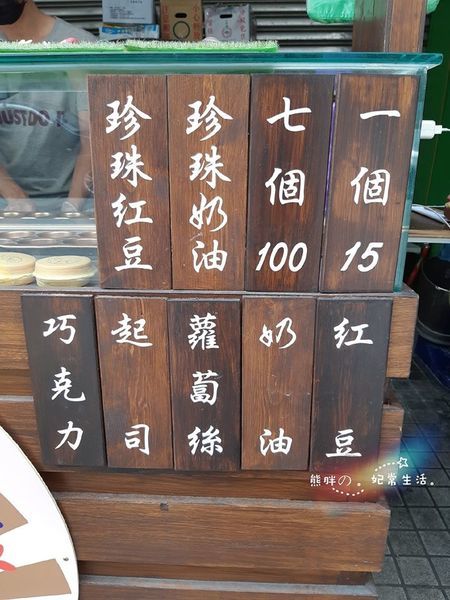 一個15
七個100
珍珠奶油
珍珠紅豆
紅豆
奶油
蘿蔔絲
起司
巧克力
JUST DO IT
熊胖の。妃常生活。